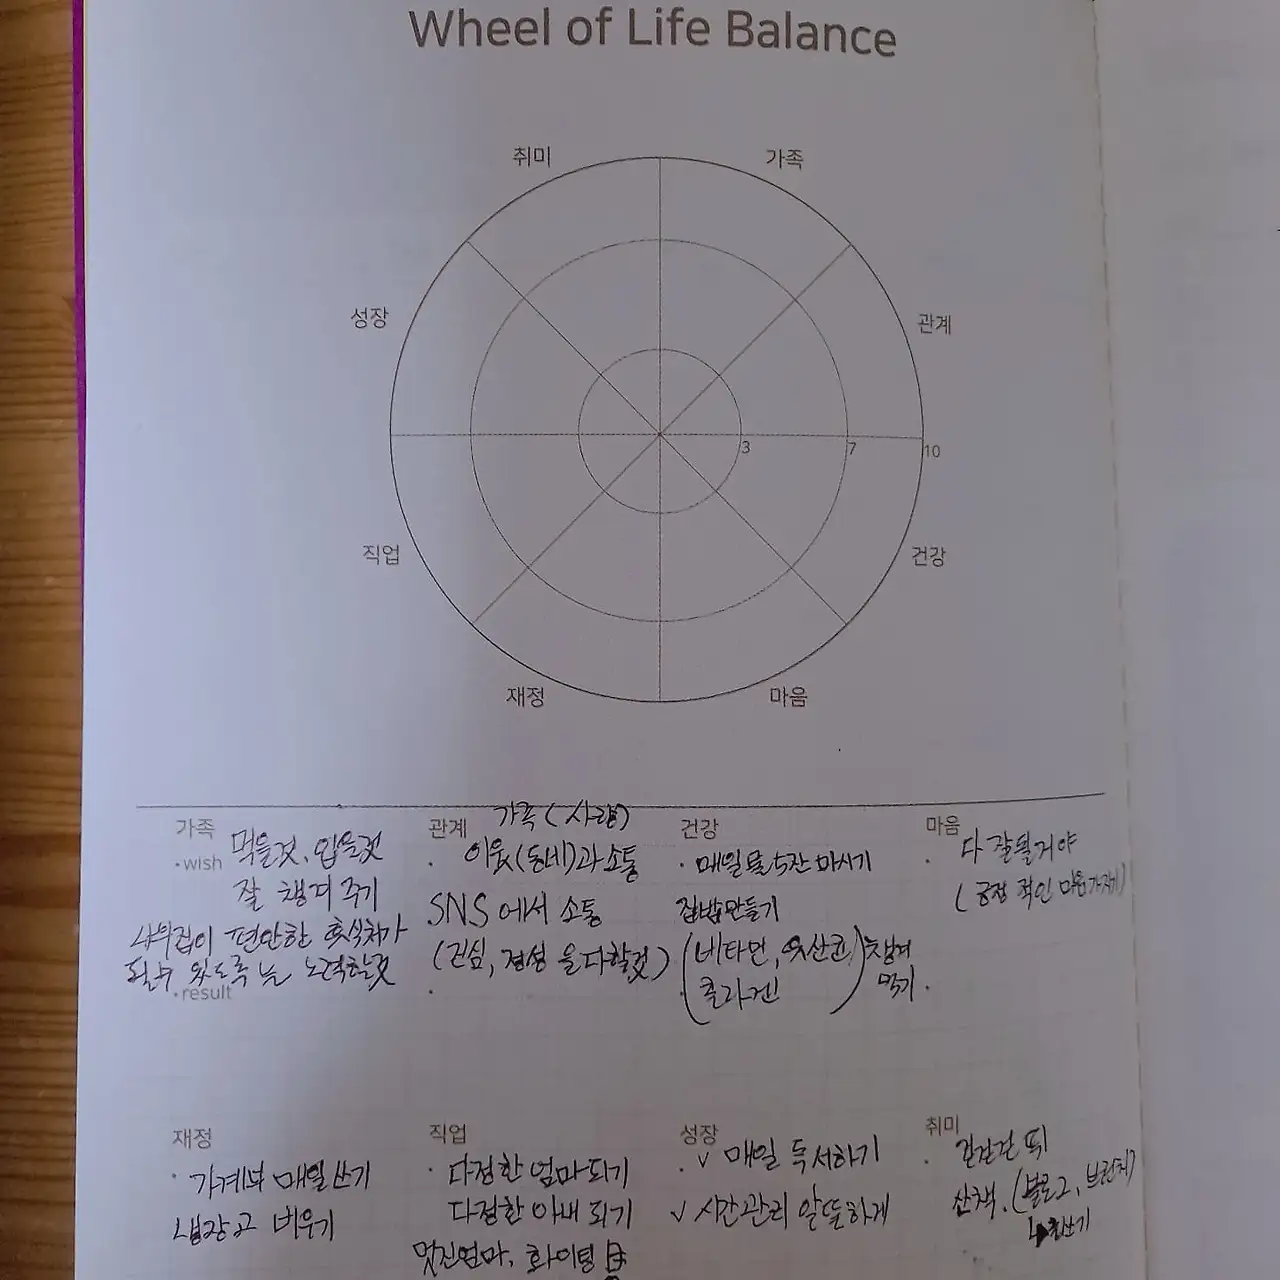 Wheel of Life Balance
취미 가족
성장 관계
3 7 10
직업 건강
재정 마음
가족
·wish 먹을것, 입을것
잘 챙겨 주기
집이 편안한 휴식처가
될수 있도록 노력할것
·result
관계 가족(사랑)
· 이웃(동네)과 소통
SNS에서 소통
(진심, 정성을 다할것)
건강
· 매일 물 5잔 마시기
집밥만들기
(비타민, 유산균, 콜라겐) 챙겨
먹기
마음
· 다 잘될거야
(긍정적인 마음가지기)
재정
· 가계부 매일 쓰기
냉장고 비우기
직업
· 다정한 엄마되기
다정한 아내 되기
멋진엄마, 화이팅
성장
· ✓ 매일 독서하기
✓ 시간관리 알뜰하게
취미
산책. (블로그, 브런치)